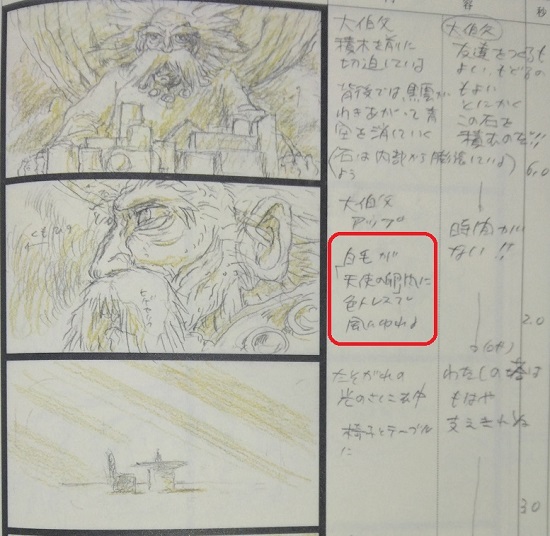 容
秒
大伯父
積木を前に
切迫している
背後では、黒雲が
わきあがって青
空を消していく
(石は内部から膨張しているよう)
大伯父
友達をつくるも
よい、もどるの
もよい
とにかく
この石を
積むのだ!!
6.0
大伯父
アップ
白毛が
天使の卵風に
色トレスで
風にゆれる
時間が
ない!!
2.0
たそがれの
光のさくこ
椅子とテーブル
に
わたしの塔は
もはや
支えきれぬ
3.0